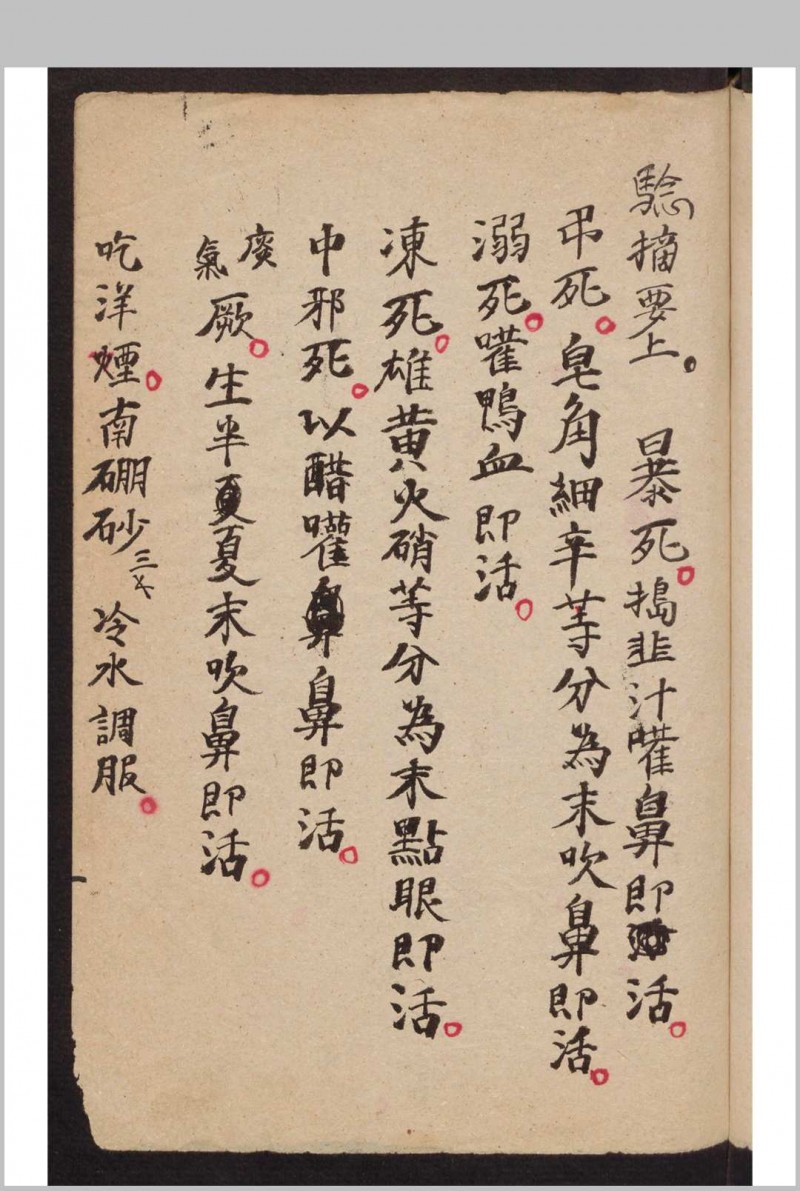 騐摘要上。暴死。搗韭汁嚾鼻即活。
吊死。皂角細辛等分為末吹鼻即活。
溺死。嚾鴨血即活。
凍死。雄黃火硝等分為末點眼即活。
中邪死。以醋嚾鼻即活。
痰氣厥。生半夏夏末吹鼻即活。
吃洋煙。南硼砂三〤冷水調服。